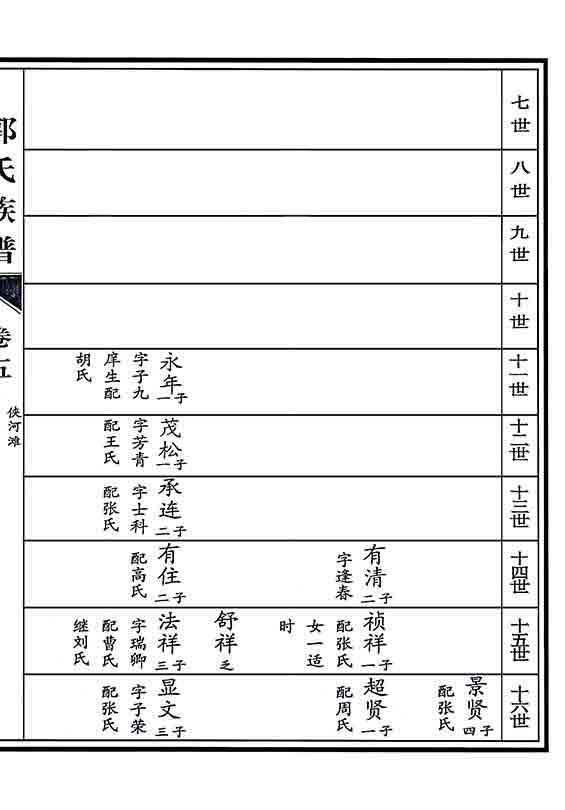 七世
八世
九世
十世
十一世
永年
一子
字子九
庠生配
胡氏
十二世
茂松
一子
字芳青
配王氏
十三世
承连
二子
字士科
配张氏
十四世
有清
二子
字逢春
有住
二子
配高氏
十五世
祯祥
一子
配张氏
女一适
时
舒祥
乏
法祥
三子
字瑞卿
配曹氏
继刘氏
十六世
景贤
四子
配张氏
超贤
一子
配周氏
显文
三子
字子荣
配张氏
郭氏族谱
卷五
侠河滩